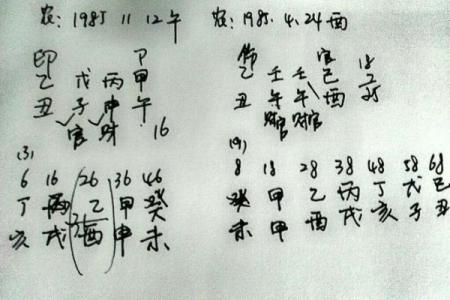 农：1985 11 12午
印 卩
乙 戊 丙 甲
丑 子 申 午
官 财 16
(3)
6 16 26 36 46
丁 丙 乙 甲 癸
亥 戌 酉 申 未
农：1985.4.24酉
伤 官 18
乙 壬 壬 己 乙
丑 午 午 酉 25
财官 财官
(9)
8 18 28 38 48 58 68
癸 甲 乙 丙 丁 戊 己
未 申 酉 戌 亥 子 丑